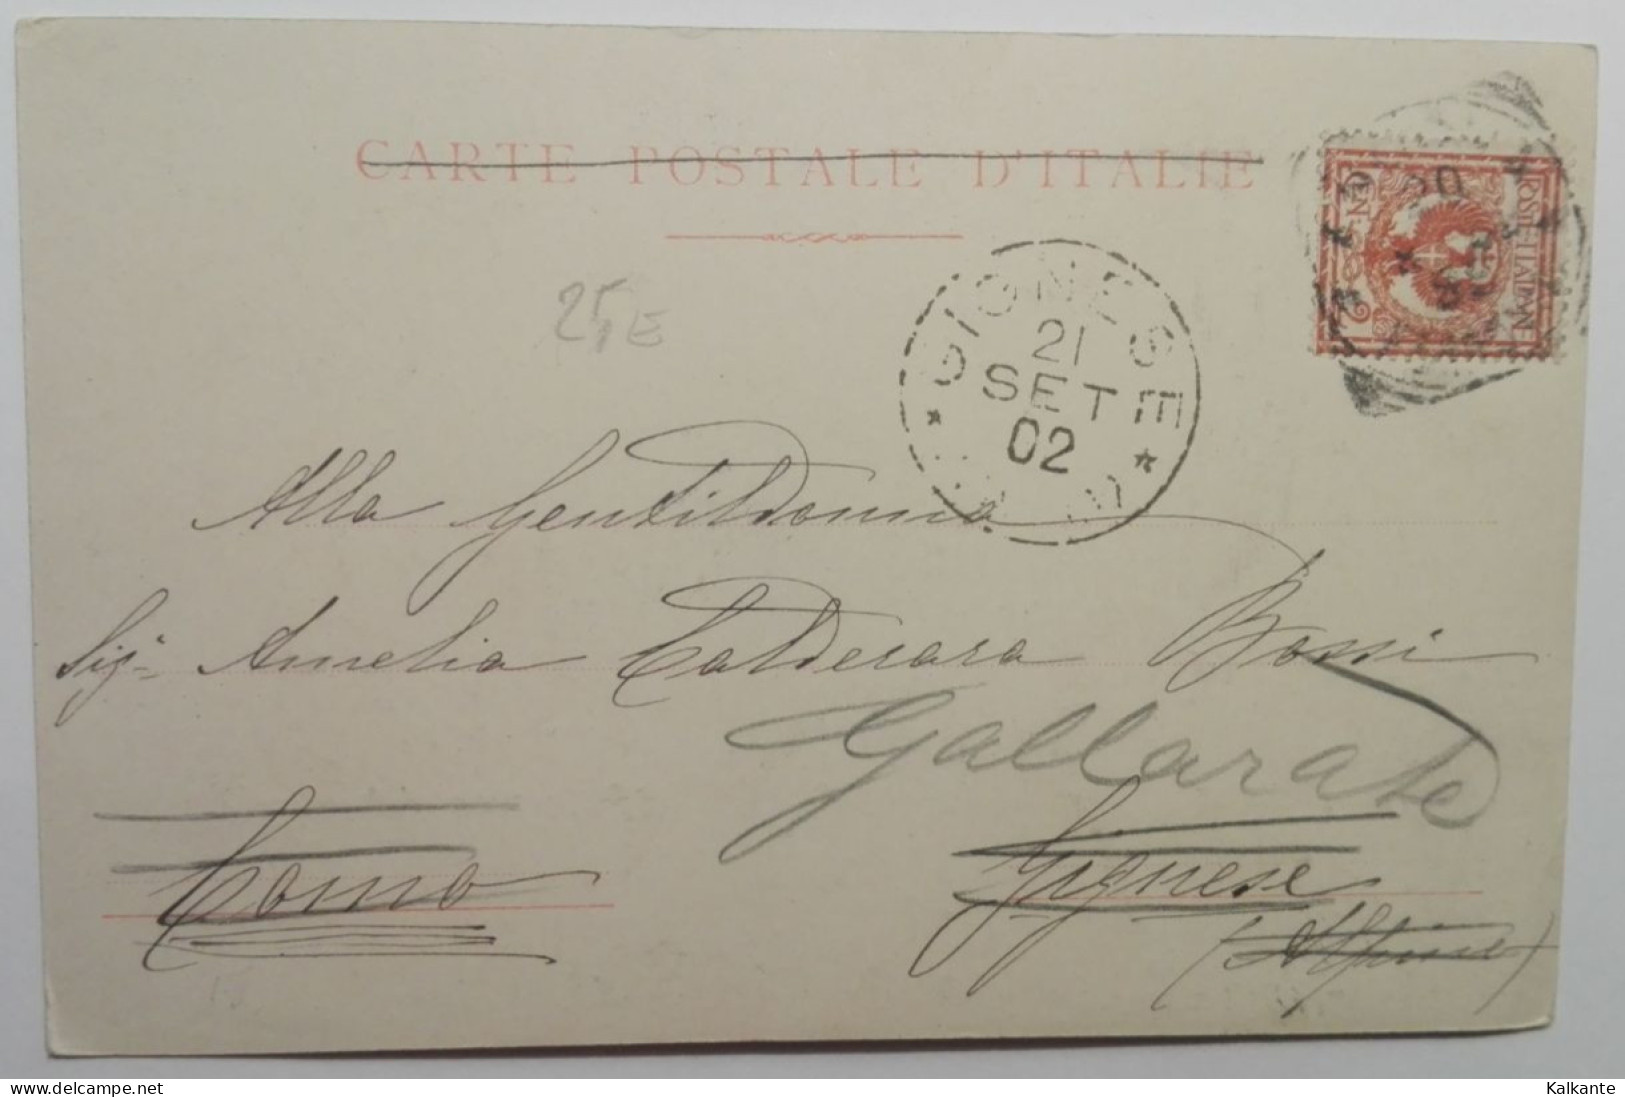 CARTE POSTALE D'ITALIE
POSTE ITALIANE
CEN. 2
25E
GIGNESE
21
SET
02
Alla Gentildonna
Sig.a Amelia Calderara Bossi
Gallarate
Como
Gignese
(Alpino)
www.delcampe.net
Kalkante